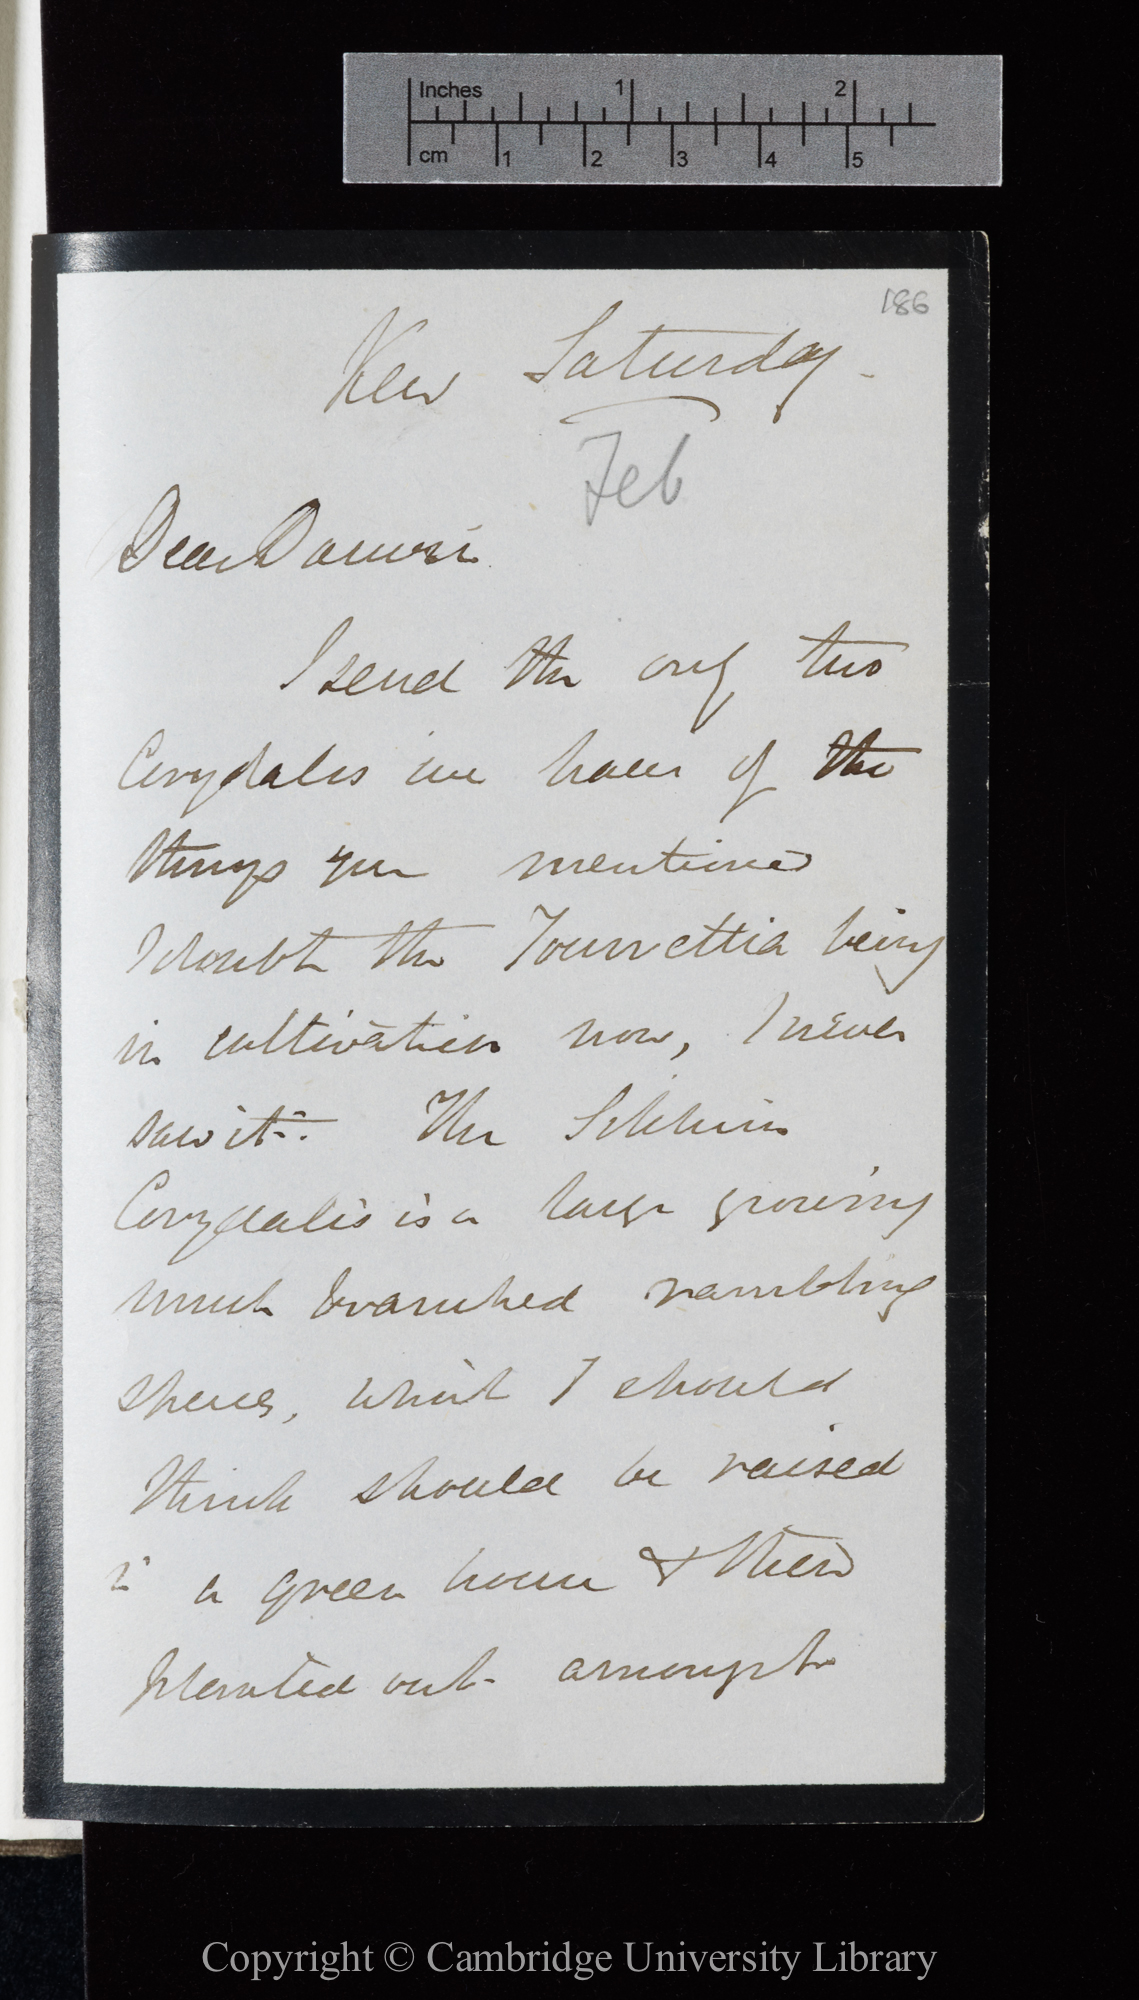 Inches 1 2
cm 1 2 3 4 5
186
Kew Saturday -
Feb
Dear Darwin
I send the only two
Corydalis we have of the
things you mentioned
I doubt the Tourrettia being
in cultivation now, I never
saw it. The Sikkim
Corydalis is a large growing
much branched rambling
species, which I should
think should be raised
in a green house & then
planted out amongst
Copyright © Cambridge University Library